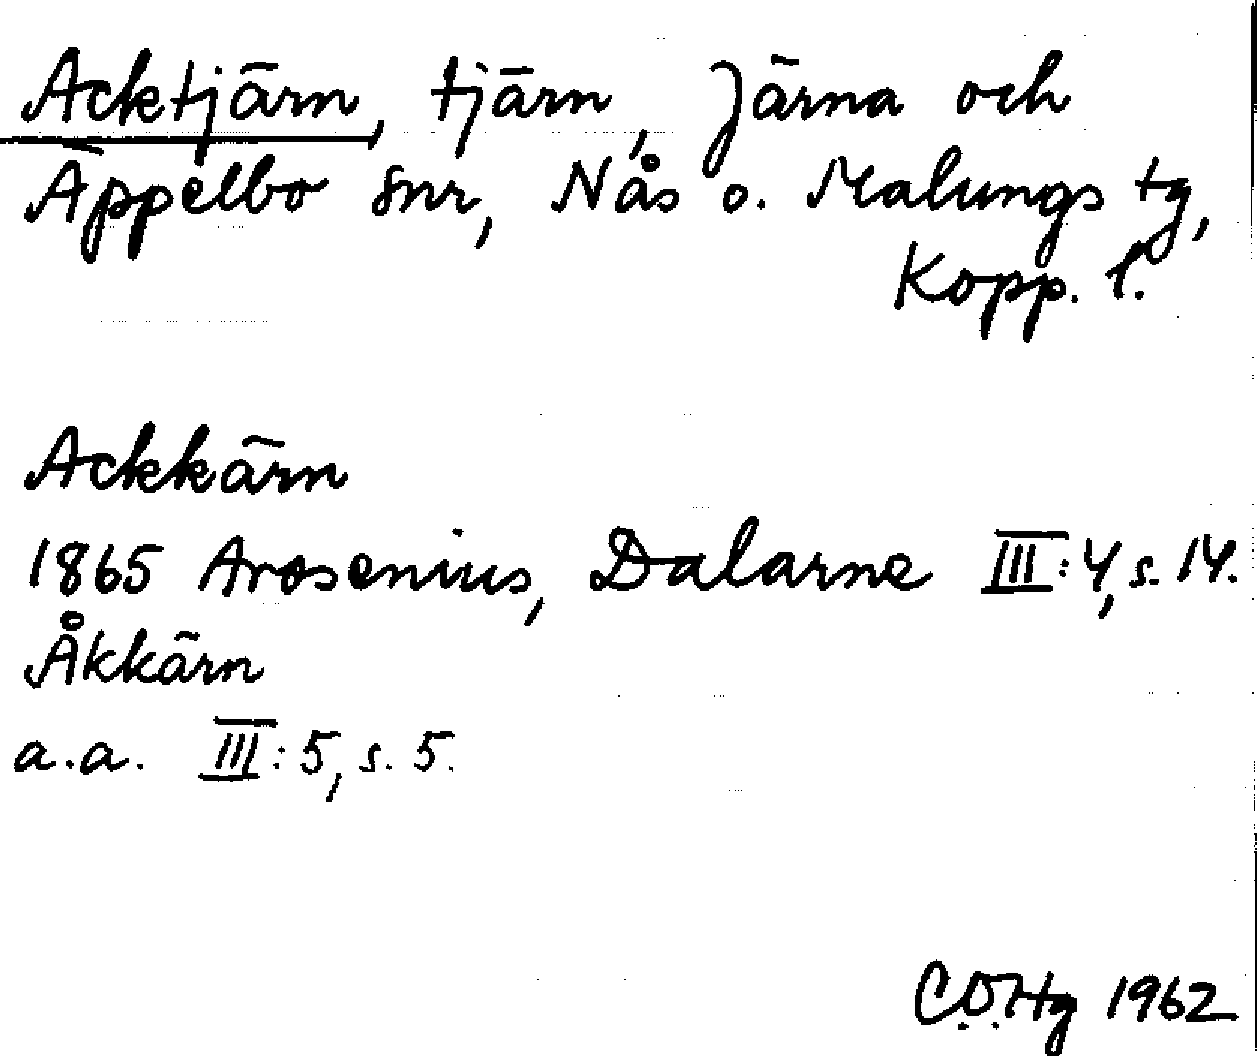 Acktjärn, tjärn, Järna och
Äppelbo snr, Nås o. Malungs tg,
Kopp. l.
Ackkärn
1865 Arosenius, Dalarne III:4, s. 14.
Åkkärn
a.a. III:5, s. 5.
C.Ö.Hg 1962